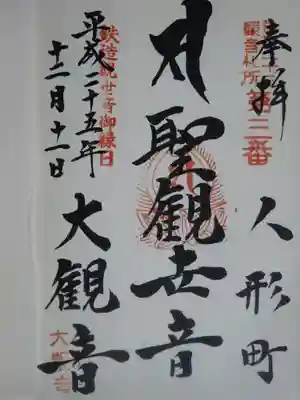 奉拝
第三番
人形町
聖観世音
大観音
鉄造観世音御縁日
平成二十五年
十二月十一日